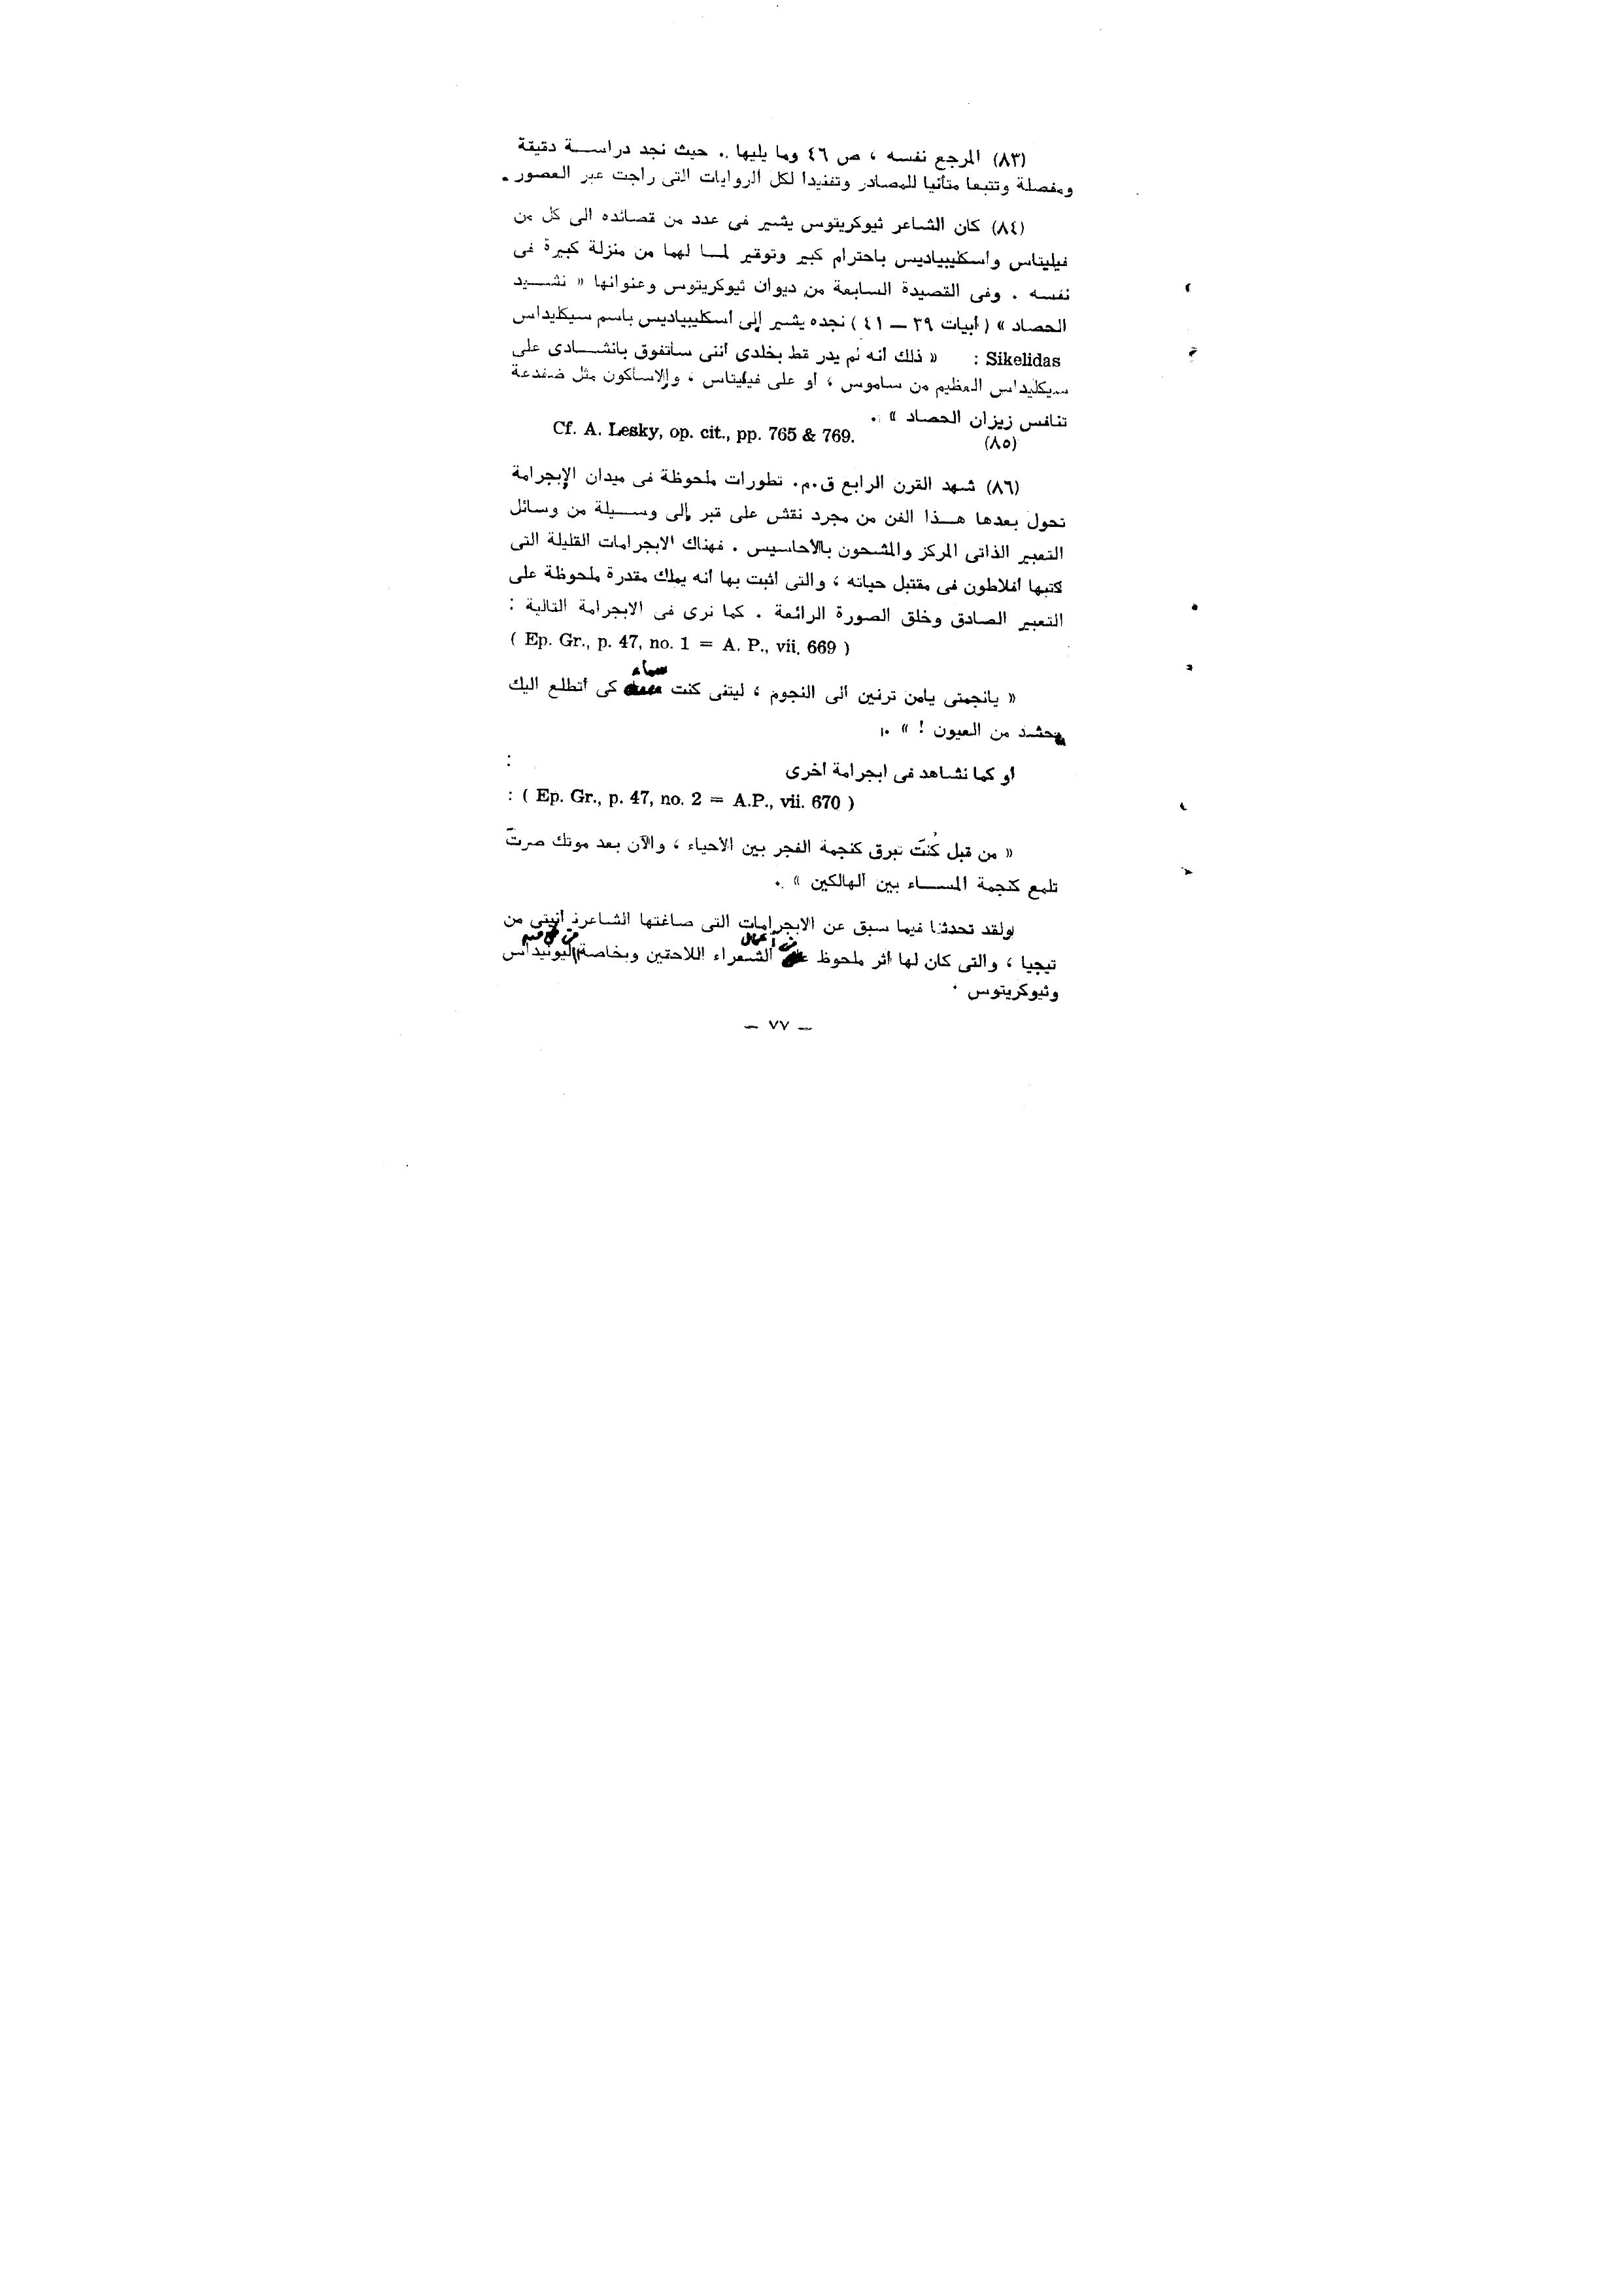 (٨٣) المرجع نفسه ، ص ٤٦ وما يليها . حيث نجد دراسة دقيقة
ومفصلة وتتبعا متأنيا للمصادر وتفنيدا لكل الروايات التى راجت عبر العصور .
(٨٤) كان الشاعر ثيوكريتوس يشير فى عدد من قصائده الى كل من
فيليتاس واسكليبياديس باحترام كبير وتوقير لما لهما من منزلة كبيرة فى
نفسه . وفى القصيدة السابعة من ديوان ثيوكريتوس وعنوانها « نشيد
الحصاد » ( أبيات ٣٩ — ٤١ ) نجده يشير إلى اسكليبياديس باسم سيكليداس
Sikelidas : « ذلك أنه لم يدر قط بخلدى أننى سأتفوق بانشادى على
سيكليداس العظيم من ساموس ، أو على فيليتاس ، وإلا سأكون مثل ضفدعة
تنافس زيزان الحصاد » .
(٨٥) Cf. A. Lesky, op. cit., pp. 765 & 769.
(٨٦) شهد القرن الرابع ق.م. تطورات ملحوظة فى ميدان الإبجرامة
تحول بعدها هذا الفن من مجرد نقش على قبر إلى وسيلة من وسائل
التعبير الذاتى المركز والمشحون بالأحاسيس . فهناك الابجرامات القليلة التى
كتبها أفلاطون فى مقتبل حياته ، والتى أثبت بها أنه يملك مقدرة ملحوظة على
التعبير الصادق وخلق الصورة الرائعة . كما نرى فى الابجرامة التالية :
( Ep. Gr., p. 47, no. 1 = A. P., vii. 669 )
« يانجمتى يامن ترنين الى النجوم ، ليتنى كنت سماء كى أتطلع اليك
بحشد من العيون ! » .
أو كما نشاهد فى ابجرامة أخرى :
: ( Ep. Gr., p. 47, no. 2 = A.P., vii. 670 )
« من قبل كُنتَ تبرق كنجمة الفجر بين الأحياء ، والآن بعد موتك صرتَ
تلمع كنجمة المساء بين الهالكين » .
ولقد تحدثنا فيما سبق عن الابجرامات التى صاغتها الشاعرة أنيتى من
تيجيا ، والتى كان لها أثر ملحوظ فى أعمال الشعراء اللاحقين وبخاصة ليونيداس
وثيوكريتوس .
— ٧٧ —